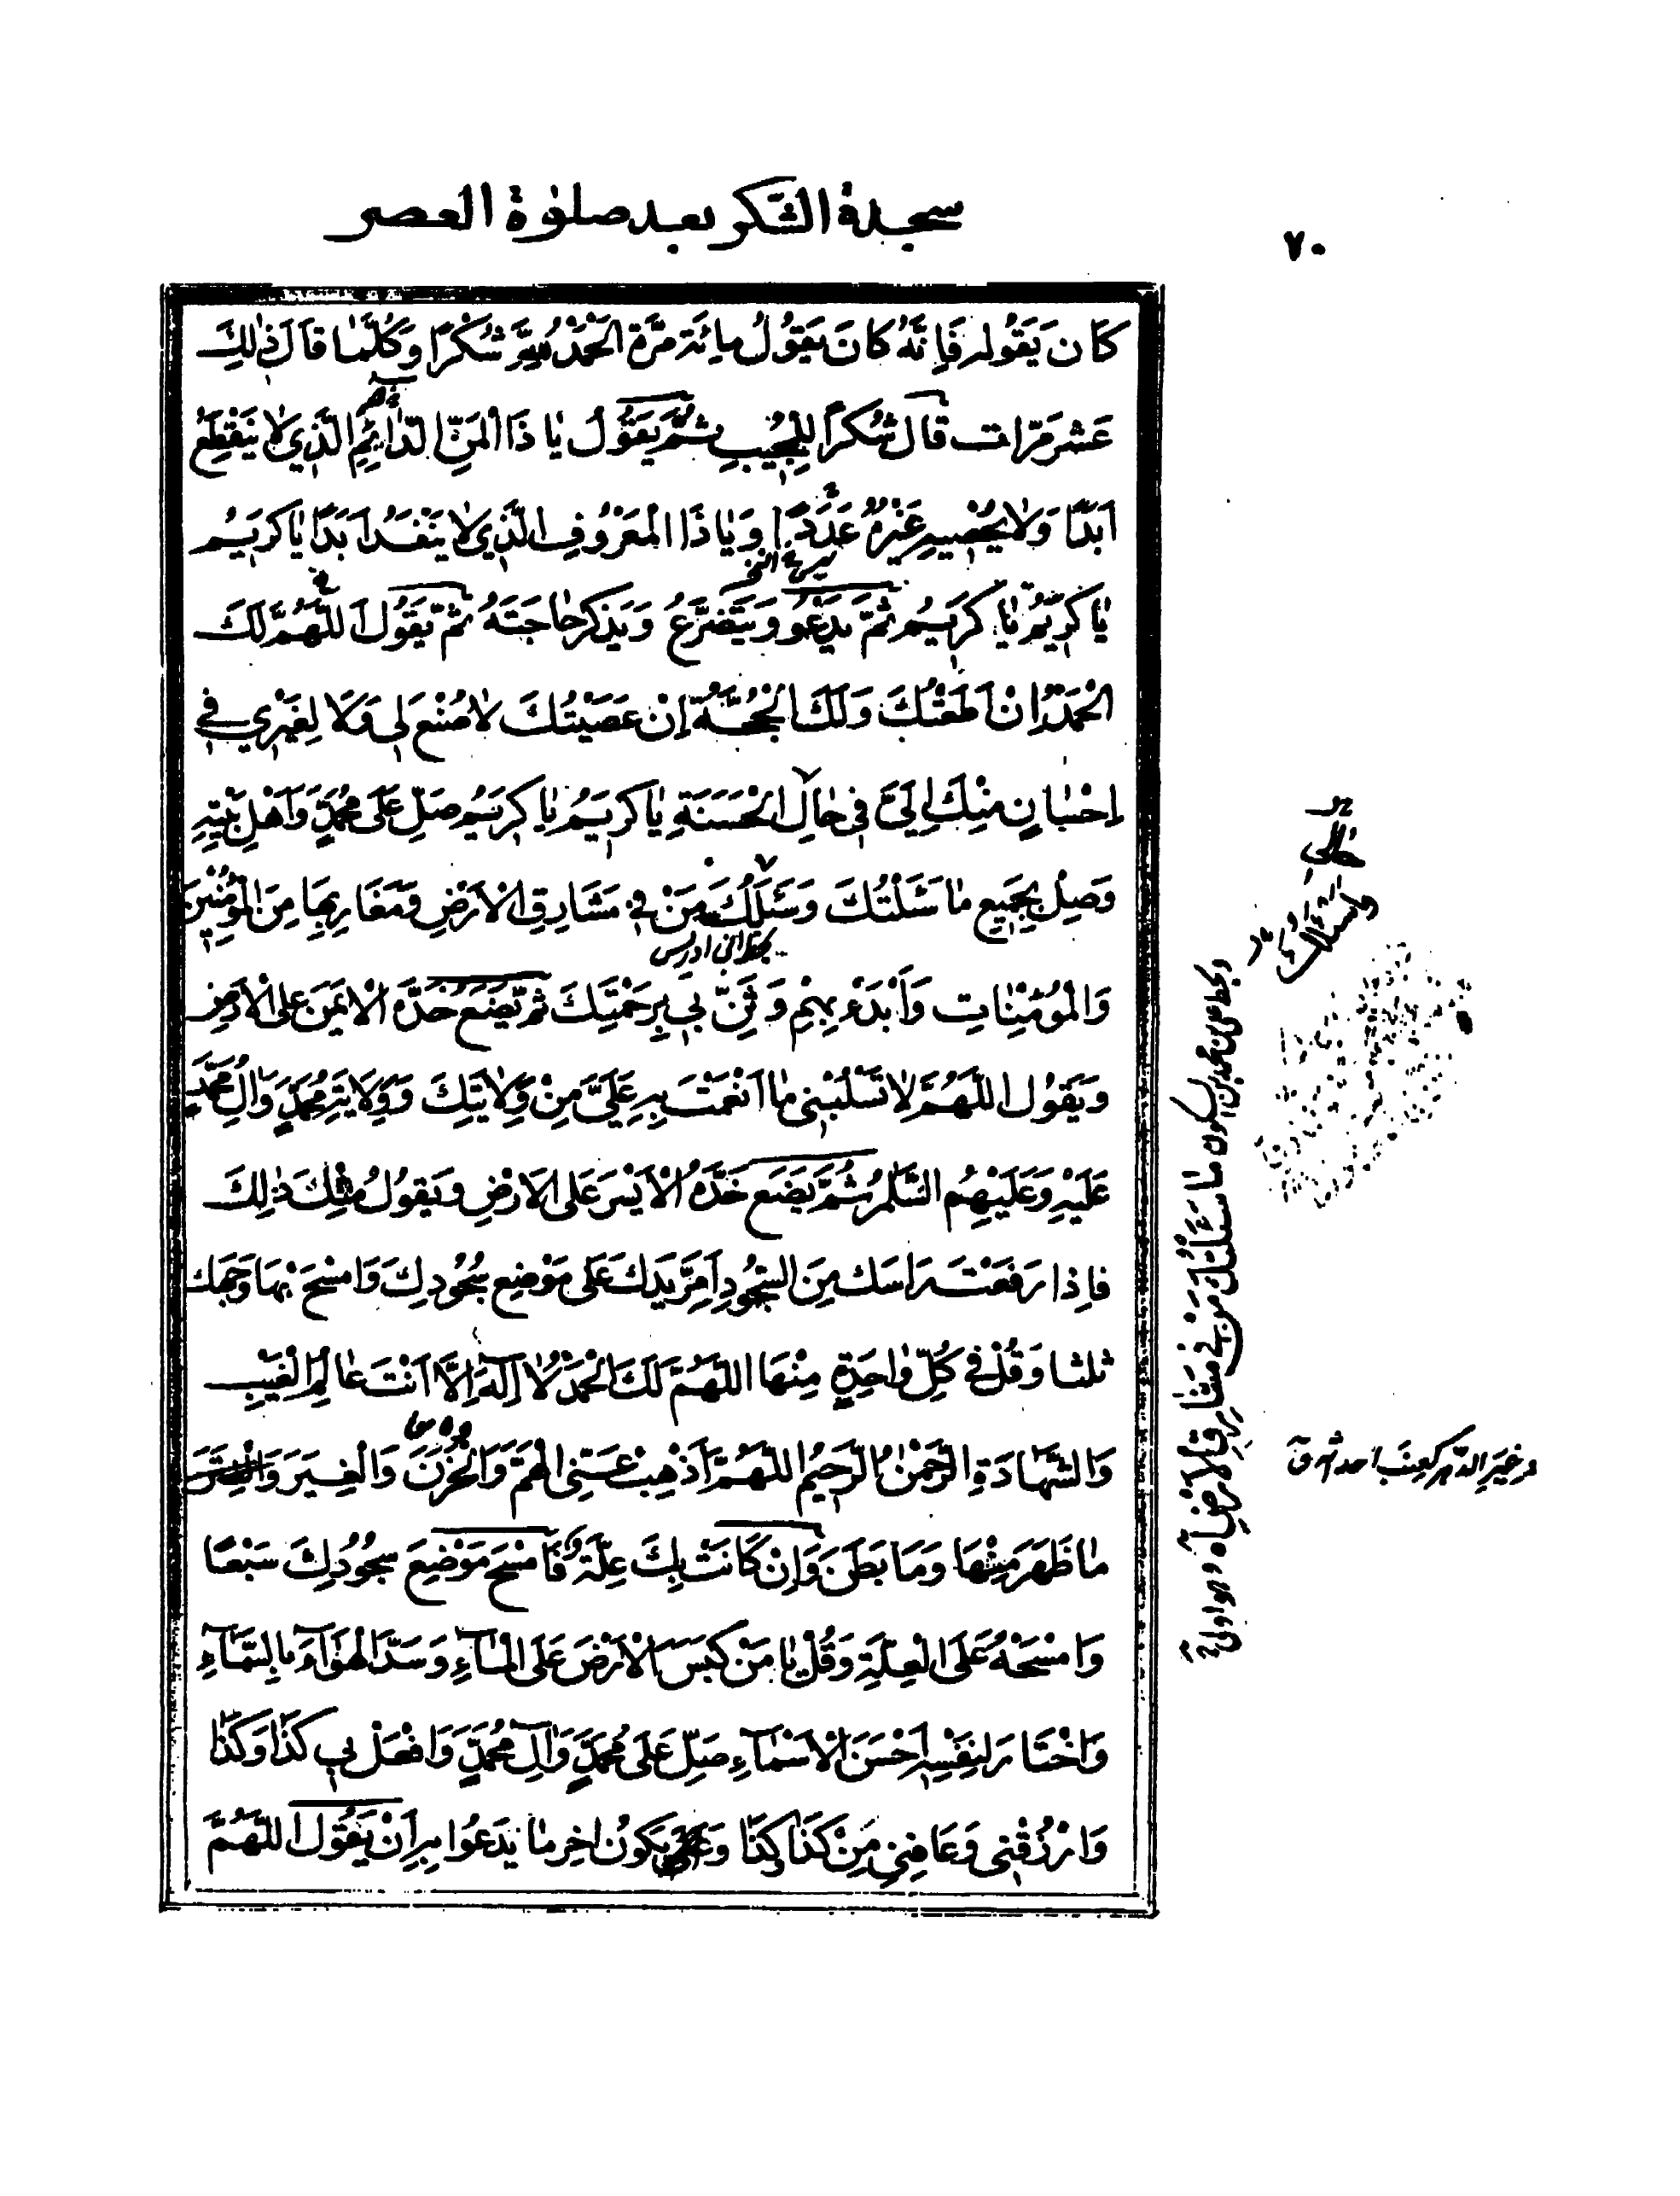 سجدة الشكر بعد صلوة العصر
٧٠
كَانَ يَقُولُه فَاِنَّهُ كَانَ يَقُولُ مِائَةَ مَرَّة الْحَمْدُ لِلّهِ شُكْرًا وَكُلَّمٰا قَالَ ذٰلِكَ
عَشرَ مَرّات قالَ شُكرًا لِلْمُجِيبِ ثُمَّ يَقُولُ يٰا ذَا الْمَنِّ الدّٰائِمِ الَّذِي لٰا يَنْقَطِعُ
اَبَدًا وَلٰا يُحْصِيهِ غَيْرُهُ عَدَدًا وَيٰا ذَا الْمَعْرُوفِ الَّذِي لٰا يَنْفَدُ اَبَدًا يٰا كَرِيمُ
يٰا كَرِيمُ يٰا كَرِيمُ ثُمَّ يَدْعُو وَيَتَضَرَّعُ وَيَذكُر حٰاجَتَهُ ثُمَّ يَقُولُ اَللّٰهُمَّ لَكَ
الْحَمْدُ اِنْ اَطَعْتُكَ وَلَكَ الْحُجَّةُ اِنْ عَصَيْتُكَ لٰا صُنْعَ لِي وَلَا لِغَيْرِي فِي
اِحْسٰانٍ مِنْكَ اِلَيَّ فِي حٰالِ الْحَسَنَةِ يٰا كَرِيمُ يٰا كَرِيمُ صَلِّ عَلَى مُحَمَّدٍ وَاَهْلِ بَيْتِهِ
وَصِلْ بِجَمِيعِ مٰا سَئَلْتُكَ وَسَئَلَكَ مَنْ فِي مَشَارِقِ الْاَرْضِ وَمَغَارِبِهَا مِنَ الْمُؤْمِنِينَ
بخط ابن ادريس
وَالْمُؤْمِنٰاتِ وَاَبْدَءْ بِهِمْ وَثَنِّ بِي بِرَحْمَتِكَ ثُمَّ يَضَعُ خَدَّهُ الْاَيْمَنَ عَلى الْاَرْضِ
وَيَقُولُ اللّٰهُمَّ لٰا تَسْلُبْنِي مٰا اَنْعَمْتَ بِهِ عَلَيَّ مِنْ وَلٰايَتِكَ وَوَلَايَةِ مُحَمَّدٍ وَاٰلِ مُحَمَّدٍ
عَلَيْهِ وَعَلَيْهِمُ السَّلٰمُ ثُمَّ يَضَع خَدَّهُ الْاَيْسَرَ عَلى الْاَرْضِ وَيَقُولُ مِثْلَ ذٰلِكَ
فَاِذا رَفَعْتَ رَاسَكَ مِنَ السُّجُودِ اَمِرَّ يَدَكَ عَلَى مَوْضِعِ سُجُودِكَ وَامْسَحْ بِهَا وَجْهَكَ
ثلثا وَقُلْ فِي كُلِّ وٰاحِدَةٍ مِنْهَا اللّٰهُمَّ لَكَ الْحَمْدُ لٰا اِلٰهَ اِلَّا اَنْتَ عٰالِمُ الْغَيْبِ
وَالشَّهَادَةِ الرَّحْمٰنُ الرَّحِيمُ اللّٰهُمَّ اَذْهِبْ عَنِّي الْهَمَّ وَالْحُزْنَ وَالْغِيَرَ وَالْفِتَنَ
مٰا ظَهَرَ مِنْهَا وَمَا بَطَنَ وَاِنْ كَانَتْ بِكَ عِلَّةٌ فَامْسَح مَوْضِعَ سُجُودِكَ سَبْعًا
وَامْسَحْهُ عَلَى الْعِلَّةِ وَقُلْ يٰا مَنْ كَبَسَ الْاَرْضَ عَلَى الْمٰآءِ وَسَدَّ الْهَوٰآءَ بِالسَّمٰآءِ
وَاخْتَارَ لِنَفْسِهِ اَحْسَنَ الْاَسْمٰآءِ صَلِّ عَلَى مُحَمَّدٍ وَاٰلِ مُحَمَّدٍ وَافْعَلْ بِي كَذٰا وَكَذٰا
وَارْزُقْنِي وَعَافِنِي مِنْ كَذٰا كَذٰا وَ يَكُونُ اٰخِر مٰا يَدعُوا بِهِ اَنْ يَقُولَ اللّٰهُمَّ
وَاَسْئَلُكَ
وبخط علي بن محمد بن السكون مٰا سَئَلْتُكَ مَنْ فِي مَشَارِقِ الْاَرْضِ